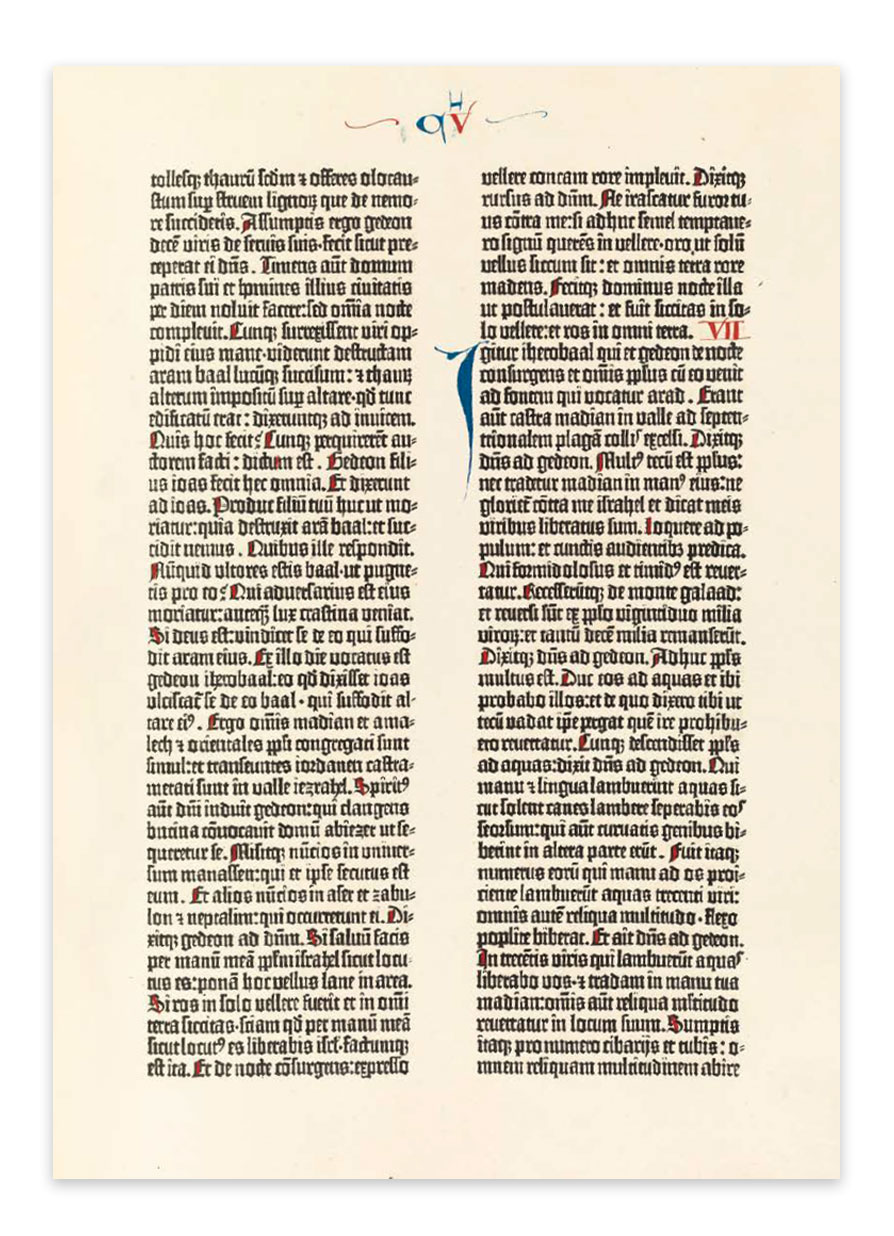 H
QV
tollesq; thaurū scd̄m ⁊ offeres olocau⸗
stum suꝑ struem lignoꝝ que de nemo⸗
re succideris. Assumptis ergo gedeon
decē viris de servis suis·fecit sicut pre⸗
ceperat ei dn̄s. Timens aūt domum
patris sui et homines illius civitatis
per diem noluit facere:sed om̄ia nocte
complevit. Cunq; surrexissent viri op⸗
pidi eius mane·viderunt destructam
aram baal lucūq; succisum: ⁊ thaurū
alterum impositū suꝑ altare·qd̄ tunc
edificatū erat: dixeruntq; ad invicem.
Quis hoc fecit? Cunq; perquirerēt au⸗
ctorem facti: dictum est. Gedeon fili⸗
us ioas fecit hec omnia. Et dixerunt
ad ioas. Produc filiū tuū huc ut mo⸗
riatur:quia destruxit arā baal:et suc⸗
cidit nemus. Quibus ille respondit.
Nūquid ultores estis baal·ut pugne⸗
tis pro eo? Qui adversarius est eius
moriatur:anteq̄ lux crastina veniat.
Si deus est:vindicet se de eo qui suffo⸗
dit aram eius. Ex illo die vocatus est
gedeon iherobaal:eo qd̄ dixisset ioas
ulciscat̄ se de eo baal· qui suffodit al⸗
tare eiꝰ. Ergo om̄is madian et ama⸗
lech ⁊ orientales ppl̄i congregati sunt
simul:et transeuntes iordanen castra⸗
metati sunt in valle iezrahel. Spiritꝰ
aūt dn̄i induit gedeon:qui clangens
bucina cōvocavit domū abiezer ut se⸗
queretur se. Misitq; nūcios in univer⸗
sum manassen:qui et ipse secutus est
eum. Et alios nūcios in aser et zabu⸗
lon ⁊ neptalim:qui occurrerunt ei. Di⸗
xitq; gedeon ad dn̄m. Si salvū facis
per manū meā ppl̄m israhel sicut locu⸗
tus es:ponā hoc vellus lane in area.
Si ros in solo vellere fuerit et in om̄i
terra siccitas·sciam qd̄ per manū meā
sicut locutꝰ es liberabis isrl̄·Factumq;
est ita. Et de nocte cōsurgens:expresso
vellere concam rore implevit. Dixitq;
rursus ad dn̄m. Ne irascatur furor tu⸗
us cōtra me:si adhuc semel temptave⸗
ro signū querēs in vellere·oro ut solū
vellus siccum sit: et omnis terra rore
madens. Fecitq; dominus nocte illa
ut postulaverat: et fuit siccitas in so⸗
lo vellere:et ros in omni terra. VII
Igitur iherobaal qui et gedeon de nocte
consurgens et om̄is ppl̄us cū eo venit
ad fontem qui vocatur arad. Erant
aūt castra madian in valle ad septen⸗
trionalem plagā collis excelsi. Dixitq;
dn̄s ad gedeon. Multꝰ tecū est ppl̄us:
nec tradetur madian in manꝰ eius:ne
glorietᷣ cōtra me israhel et dicat meis
viribus liberatus sum. Loquere ad po⸗
pulum: et cunctis audientibꝫ predica.
Qui formidolosus et timidꝰ est rever⸗
tatur. Recesserūtq; de monte galaad:
et reversi sūt ex ppl̄o viginti duo milia
viroꝝ:et tantū decē milia remanserūt.
Dixitq; dn̄s ad gedeon. Adhuc ppl̄s
multus est. Duc eos ad aquas et ibi
probabo illos:et de quo dixero tibi ut
tecū vadat ip̄e pergat quē ire prohibu⸗
ero revertatur. Cunq; descendisset ppl̄s
ad aquas:dixit dn̄s ad gedeon. Qui
manu ⁊ lingua lambuerint aquas si⸗
cut solent canes lambere seperabis eos
seorsum:qui aūt curvatis genibus bi⸗
berint in altera parte erūt. Fuit itaq;
numerus eorū qui manu ad os proi⸗
ciente lambuerūt aquas trecenti viri:
omnis autē reliqua multitudo· flexo
poplite biberat. Et ait dn̄s ad gedeon.
In trecētis viris qui lambuerūt aquas
liberabo vos·⁊ tradam in manu tua
madian:om̄is aūt reliqua ml̄titudo
revertatur in locum suum. Sumptis
itaq; pro numero cibarijs et tubis: o⸗
mnem reliquam multitudinem abire